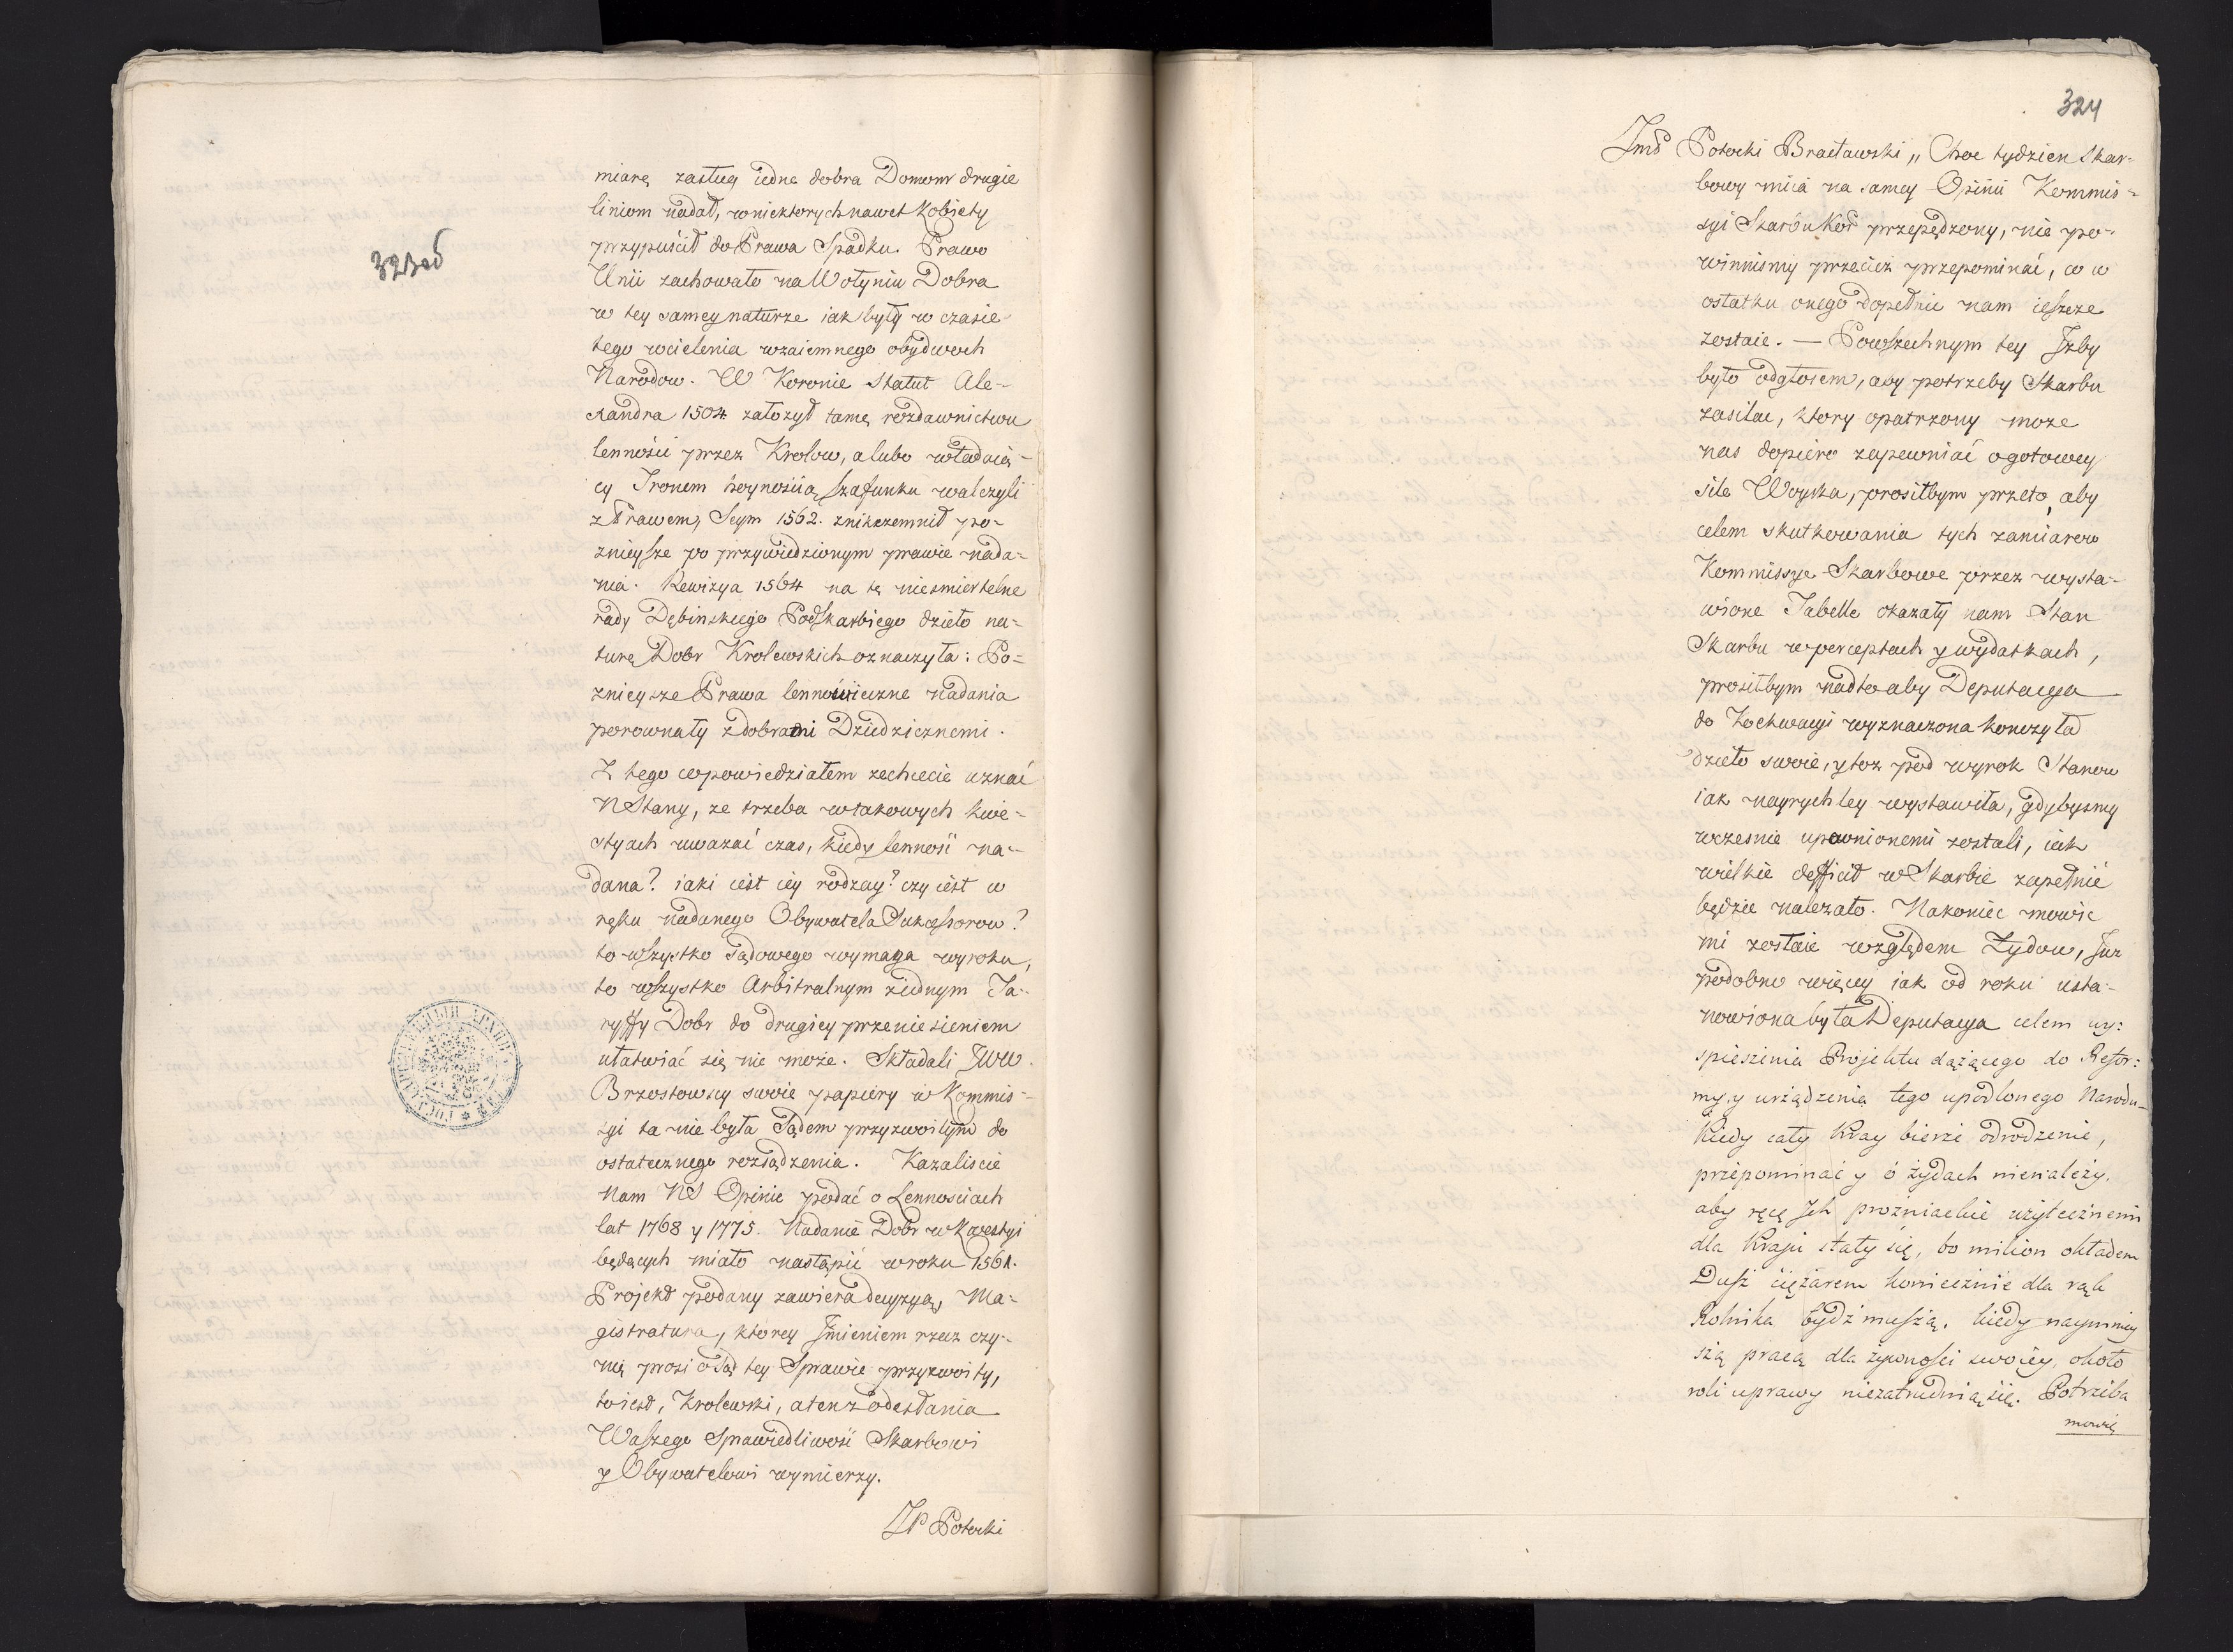 323 об
miarę zasług iedne dobra Domom drugie
liniom nadał, w niektorych nawet Kobiety
przypuścił do Prawa Spadku. Prawo
Unii zachowało na Wołyniu Dobra
w tey samey naturze iak były w czasie
tego wcielenia wzaiemnego obydwoch
Narodow. W Koronie Statut Ale-
xandra 1504 załozył tamę rozdawnictwu
lennośći przez Krolow, a lubo władaią-
cy Tronem hoynośćią szafunku walczyli
z Prawem, Seym 1562. znikczemnił po-
znieysze po przywiedzionym prawie nada-
nia. Rewizya 1564 na tę niesmiertelne
rady Dębinskiego Podskarbiego dzieło na-
turę Dobr Krolewskich oznaczyła: Po-
znieysze Prawa lenno wieczne nadania
porownały z dobrami Dziedzicznemi.
Z tego co powiedziałem zechcecie uznać
NStany, ze trzeba w takowych kwe-
styach uwazać czas, kiedy lenność na-
dana? iaki iest iey rodzay? czy iest w
ręku nadanego Obywatela Sukcessorow?
to wszystko sądowego wymaga wyroku,
to wszystko Arbitralnym ziednym Ta-
ryffy Dobr do drugiey przeniesieniem
ułatwiać się nie może. Składali JWW.
Brzostowscy swoie papiery w Kommis-
syi ta nie była Sądem przyzwoitym do
ostatecznego rozsądzenia. Kazaliscie
nam NS Opinie podać o Lennościach
lat 1768 y 1775. Nadanie Dobr w kwestyi
będących miało nastąpić w roku 1561.
Projekt podany zawiera decyzyą, Ma-
gistratura, ktorey Imieniem rzecz czy-
nię prosi o Sąd tey Sprawie przyzwoity,
to iest, Krolewski, a ten z odesłania
Waszego Sprawiedliwość Skarbowi
y Obywatelowi wymierzy.
JP Potocki
324
Jmć Potocki Bracławski „ Choc tydzien Skar-
bowy miia na samey Opinii Kommis-
syi Skarbu Kor przepędzony, nie po-
winnismy przecież przepominać, co w
ostatku onego dopełnić nam ieszcze
zostaie. — Powszechnym tey Izby
było odgłosem, aby potrzeby Skarbu
zasilać, ktory opatrzony moze
nas dopiero zapewniać o gotowey
sile Woyska, prosiłbym przeto, aby
celem skutkowania tych zamiarow
Kommissye Skarbowe przez wysta-
wione Tabelle okazały nam Stan
Skarbu w perceptach y wydatkach,
prosiłbym nadto aby Deputacya
do Koekwacyi wyznaczona konczyła
dzieło swoie, y toz pod wyrok Stanow
iak nayrychley wystawiła, gdybysmy
wczesnie upewnionemi zostali, iak
wielkie defficit w Skarbie zapełnić
będzie nalezało. Nakoniec mowic
mi zostaie względem Żydow, Juz
podobno więcey iak od roku usta-
nowiona była Deputacya celem wy-
spieszenia Projektu dążącego do Refor-
my y urządzenia tego upodlonego Narodu
kiedy cały Kray bierze odrodzenie,
przepominać y o żydach nienależy.
aby ręce Ich prożniackie użytecznemi
dla Kraju stały się, bo milion okładem
Dusz ciężarem koniecznie dla rąk
Rolnika bydź muszą. kiedy naymniey-
szą pracą dla żywności swoiey, około
roli uprawy niezatrudnia się. Potrzeba
mowię